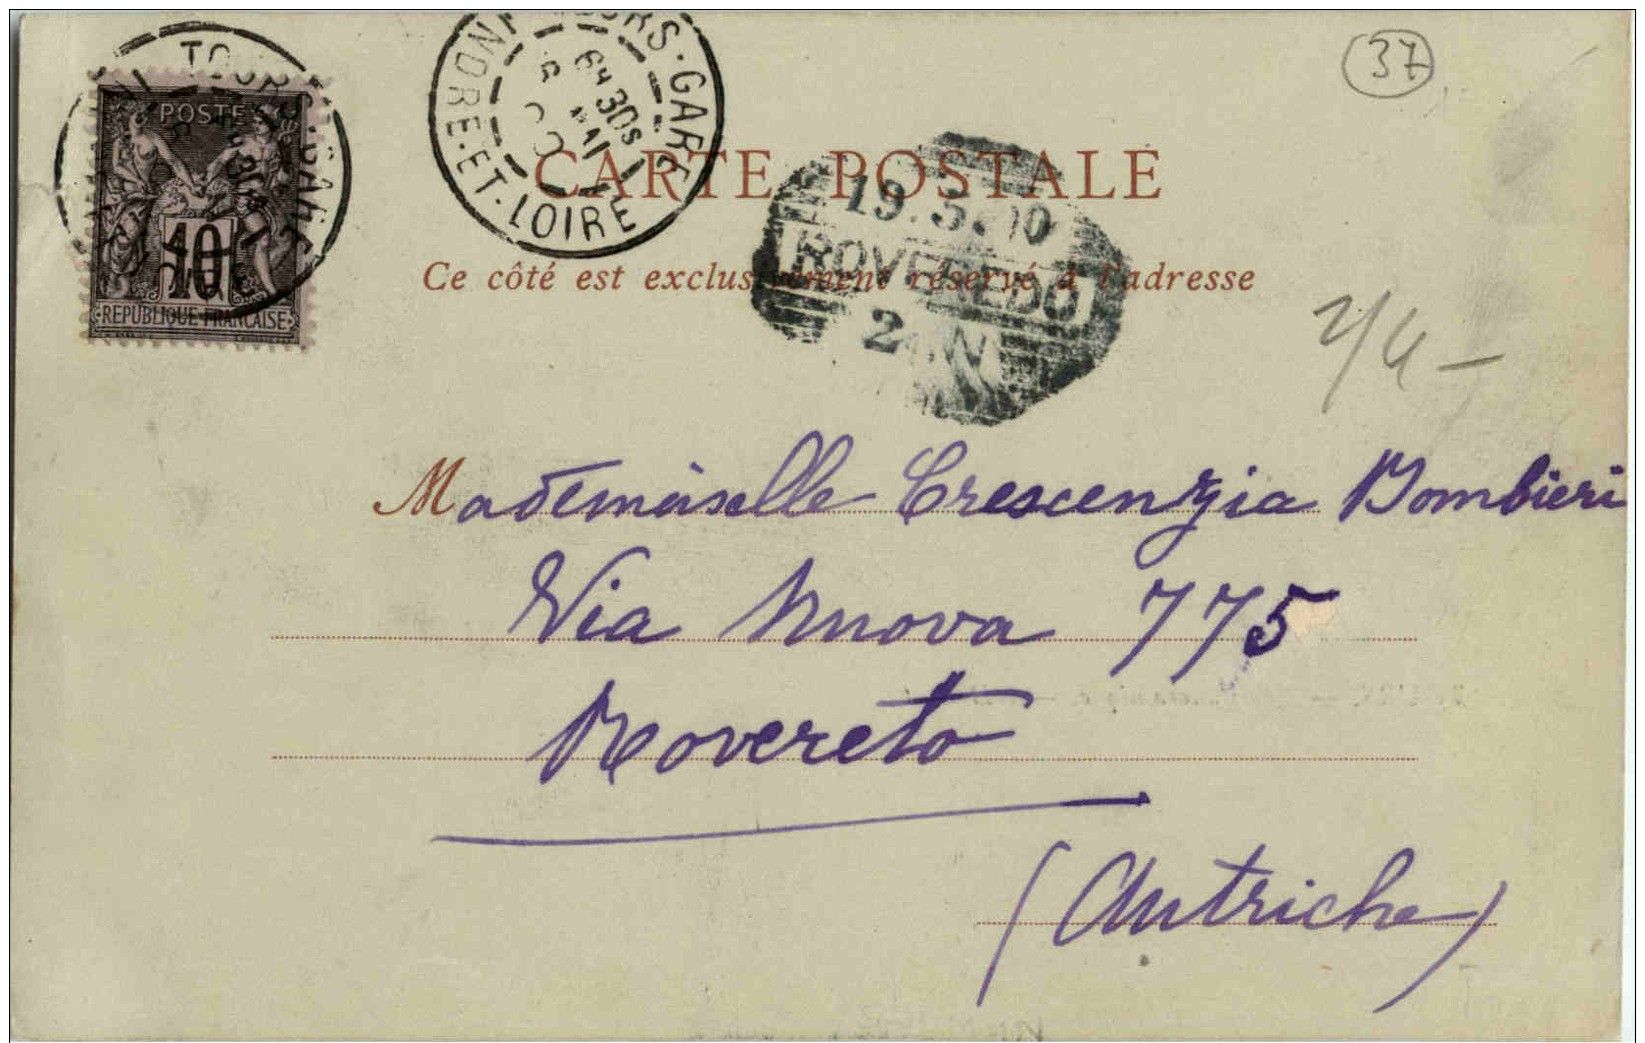 37
POSTES
10
REPUBLIQUE FRANCAISE
TOURS-GARE
TOURS-GARE
6H 30S
MAI
00
INDRE-ET-LOIRE
CARTE POSTALE
19.5.00
ROVEREDO
Ce côté est exclusivement réservé à l'adresse
Mademoiselle Crescenzia Bombieri
Via Nuova 775
Rovereto
(Autriche)